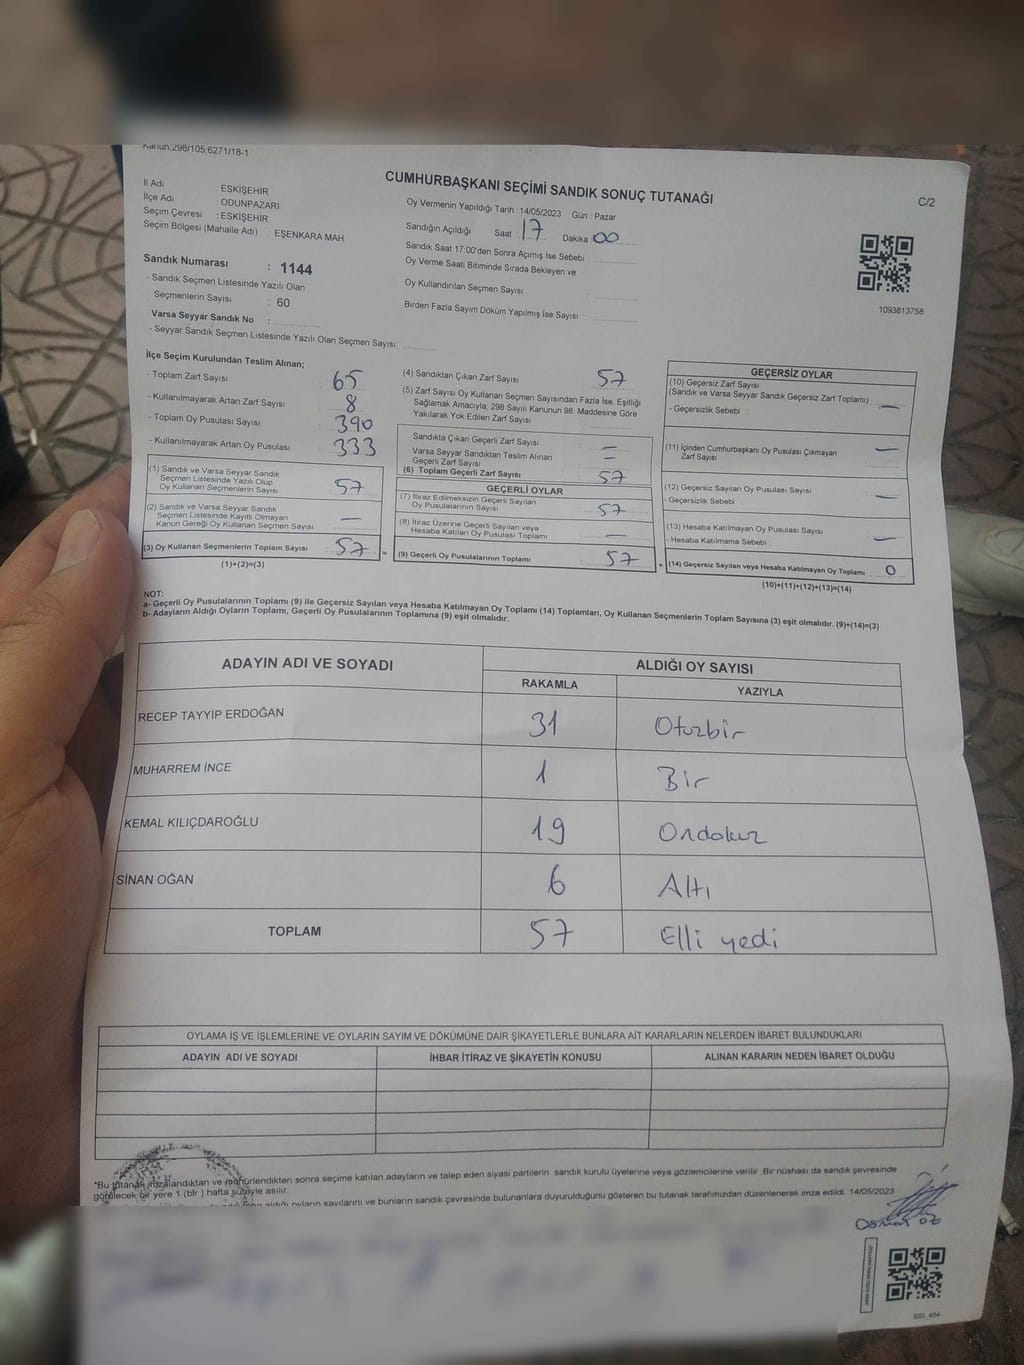 Kanun;298/105;6271/18-1
CUMHURBAŞKANI SEÇİMİ SANDIK SONUÇ TUTANAĞI
C/2
İl Adı : ESKİŞEHİR
İlçe Adı : ODUNPAZARI
Seçim Çevresi : ESKİŞEHİR
Seçim Bölgesi (Mahalle Adı) : EŞENKARA MAH
Sandık Numarası : 1144
- Sandık Seçmen Listesinde Yazılı Olan
Seçmenlerin Sayısı : 60
Varsa Seyyar Sandık No :
- Seyyar Sandık Seçmen Listesinde Yazılı Olan Seçmen Sayısı:
Oy Vermenin Yapıldığı Tarih : 14/05/2023 Gün : Pazar
Sandığın Açıldığı Saat 17 Dakika 00
Sandık Saat 17:00'den Sonra Açımış İse Sebebi :
Oy Verme Saati Bitiminde Sırada Bekleyen ve
Oy Kullandırılan Seçmen Sayısı
Birden Fazla Sayım Döküm Yapılmış İse Sayısı :
1093813758
İlçe Seçim Kurulundan Teslim Alınan;
- Toplam Zarf Sayısı 65
- Kullanılmayarak Artan Zarf Sayısı : 8
- Toplam Oy Pusulası Sayısı 390
- Kullanılmayarak Artan Oy Pusulası 333
(1) Sandık ve Varsa Seyyar Sandık
Seçmen Listesinde Yazılı Olup
Oy Kullanan Seçmenlerin Sayısı 57
(2) Sandık ve Varsa Seyyar Sandık
Seçmen Listesinde Kayıtlı Olmayan
Kanun Gereği Oy Kullanan Seçmen Sayısı —
(3) Oy Kullanan Seçmenlerin Toplam Sayısı 57 =
(1)+(2)=(3)
(4) Sandıktan Çıkan Zarf Sayısı 57
(5) Zarf Sayısı Oy Kullanan Seçmen Sayısından Fazla İse, Eşitliği
Sağlamak Amacıyla, 298 Sayılı Kanunun 98. Maddesine Göre
Yakılarak Yok Edilen Zarf Sayısı
Sandıkta Çıkan Geçerli Zarf Sayısı —
Varsa Seyyar Sandıktan Teslim Alınan
Geçerli Zarf Sayısı —
(6) Toplam Geçerli Zarf Sayısı 57
GEÇERLİ OYLAR
(7) İtiraz Edilmeksizin Geçerli Sayılan
Oy Pusulalarının Sayısı 57
(8) İtiraz Üzerine Geçerli Sayılan veya
Hesaba Katılan Oy Pusulası Toplamı —
(9) Geçerli Oy Pusulalarının Toplamı 57 +
GEÇERSİZ OYLAR
(10) Geçersiz Zarf Sayısı
(Sandık ve Varsa Seyyar Sandık Geçersiz Zarf Toplamı) : —
- Geçersizlik Sebebi :
(11) İçinden Cumhurbaşkanı Oy Pusulası Çıkmayan
Zarf Sayısı —
(12) Geçersiz Sayılan Oy Pusulası Sayısı —
- Geçersizlik Sebebi :
(13) Hesaba Katılmayan Oy Pusulası Sayısı
- Hesaba Katılmama Sebebi : —
(14) Geçersiz Sayılan veya Hesaba Katılmayan Oy Toplamı 0
(10)+(11)+(12)+(13)=(14)
NOT:
a- Geçerli Oy Pusulalarının Toplamı (9) ile Geçersiz Sayılan veya Hesaba Katılmayan Oy Toplamı (14) Toplamları, Oy Kullanan Seçmenlerin Toplam Sayısına (3) eşit olmalıdır. (9)+(14)=(3)
b- Adayların Aldığı Oyların Toplamı, Geçerli Oy Pusulalarının Toplamına (9) eşit olmalıdır.
ADAYIN ADI VE SOYADI ALDIĞI OY SAYISI
RAKAMLA YAZIYLA
RECEP TAYYİP ERDOĞAN 31 Otuzbir
MUHARREM İNCE 1 Bir
KEMAL KILIÇDAROĞLU 19 Ondokuz
SİNAN OĞAN 6 Altı
TOPLAM 57 Elli yedi
OYLAMA İŞ VE İŞLEMLERİNE VE OYLARIN SAYIM VE DÖKÜMÜNE DAİR ŞİKAYETLERLE BUNLARA AİT KARARLARIN NELERDEN İBARET BULUNDUKLARI
ADAYIN ADI VE SOYADI İHBAR İTİRAZ VE ŞİKAYETİN KONUSU ALINAN KARARIN NEDEN İBARET OLDUĞU
"Bu tutanak imzalandıktan ve mühürlendikten sonra seçime katılan adayların ve talep eden siyasi partilerin sandık kurulu üyelerine veya gözlemcilerine verilir. Bir nüshası da sandık çevresinde
görülecek bir yere 1 (bir) hafta süreyle asılır.
aldığı oyların sayılarını ve bunların sandık çevresinde bulunanlara duyurulduğunu gösteren bu tutanak tarafımızdan düzenlenerek imza edildi. 14/05/2023